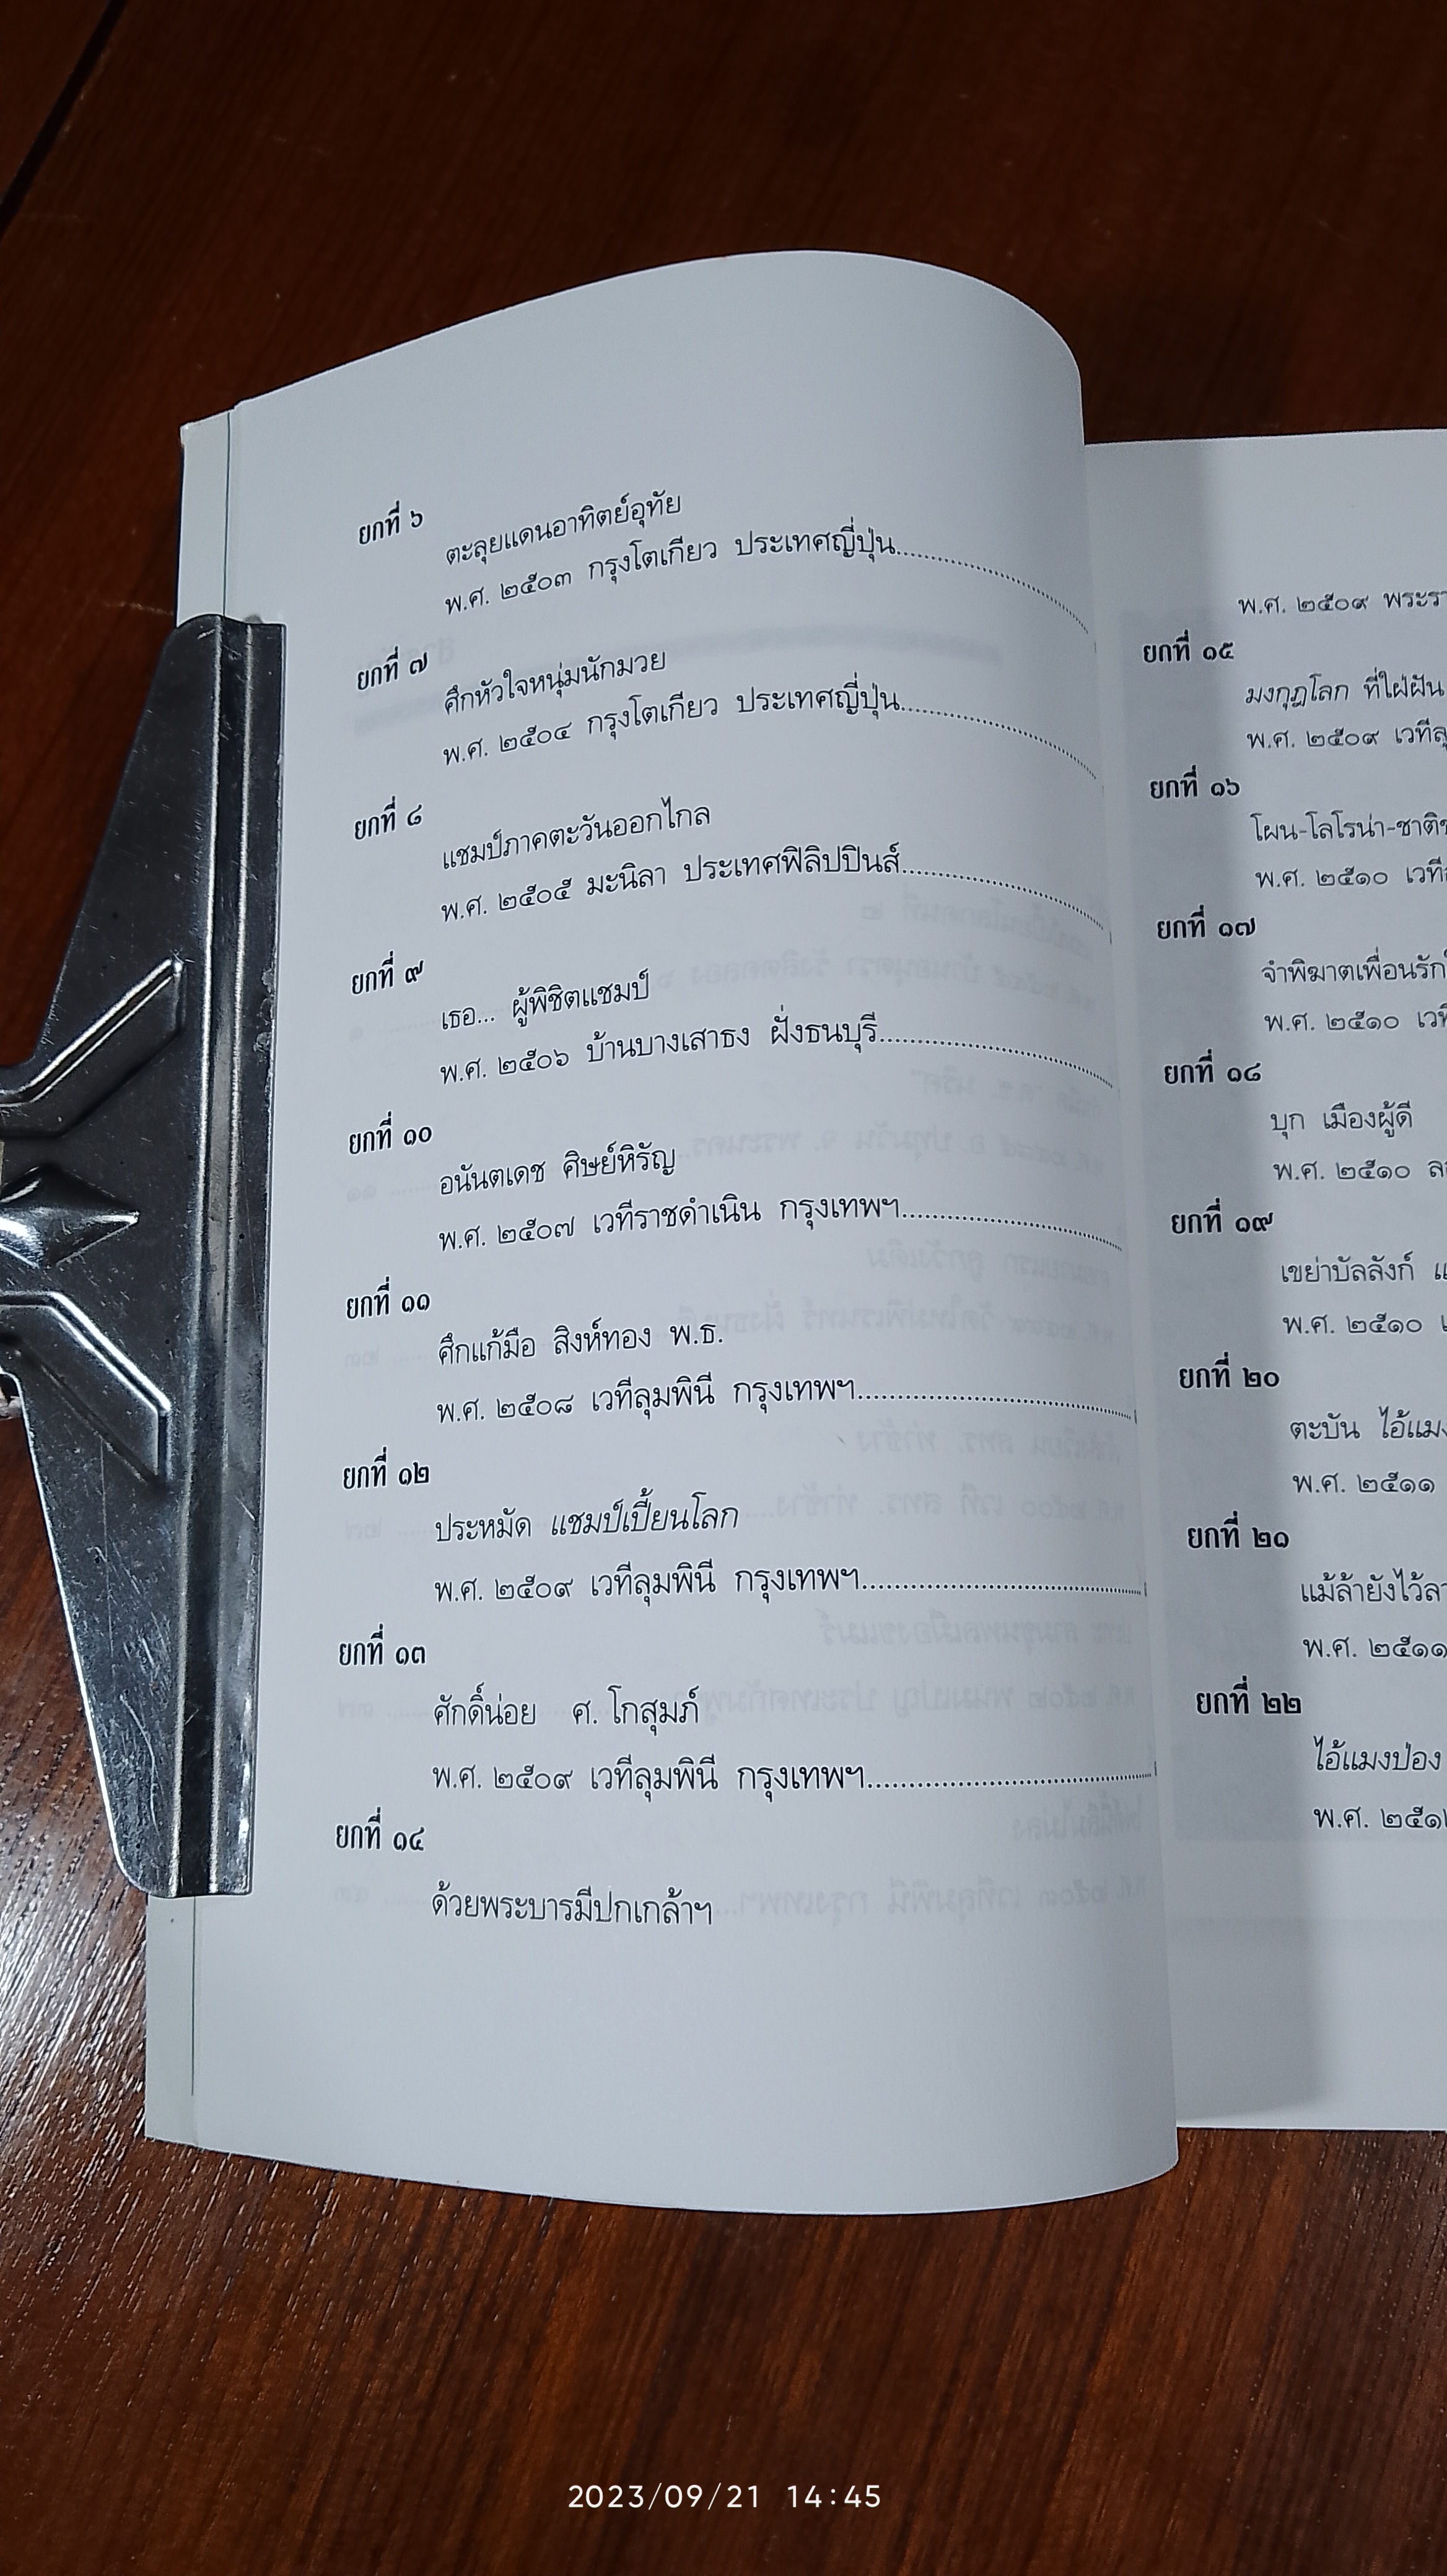 ยกที่ ๖
ตะลุยแดนอาทิตย์อุทัย
พ.ศ. ๒๕๐๓ กรุงโตเกียว ประเทศญี่ปุ่น
ยกที่ ๗
ศึกหัวใจหนุ่มนักมวย
พ.ศ. ๒๕๐๔ กรุงโตเกียว ประเทศญี่ปุ่น
ยกที่ ๘
แชมป์ภาคตะวันออกไกล
พ.ศ. ๒๕๐๕ มะนิลา ประเทศฟิลิปปินส์
ยกที่ ๙
เธอ... ผู้พิชิตแชมป์
พ.ศ. ๒๕๐๖ บ้านบางเสาธง ฝั่งธนบุรี
ยกที่ ๑๐
อนันตเดช ศิษย์หิรัญ
พ.ศ. ๒๕๐๗ เวทีราชดำเนิน กรุงเทพฯ
ยกที่ ๑๑
ศึกแก้มือ สิงห์ทอง พ.ธ.
พ.ศ. ๒๕๐๘ เวทีลุมพินี กรุงเทพฯ
ยกที่ ๑๒
ประหมัด แชมป์เปี้ยนโลก
พ.ศ. ๒๕๐๙ เวทีลุมพินี กรุงเทพฯ
ยกที่ ๑๓
ศักดิ์น่อย ศ. โกสุมภ์
พ.ศ. ๒๕๐๙ เวทีลุมพินี กรุงเทพฯ
ยกที่ ๑๔
ด้วยพระบารมีปกเกล้าฯ
พ.ศ. ๒๕๐๙
ยกที่ ๑๕
มงกุฎโลก ที่ใฝ่ฝัน
พ.ศ. ๒๕๐๙
ยกที่ ๑๖
โผน-โลโรน่า-ชาติช
พ.ศ. ๒๕๑๐
ยกที่ ๑๗
จำพิฆาตเพื่อนรัก
พ.ศ. ๒๕๑๐
ยกที่ ๑๘
บุก เมืองผู้ดี
พ.ศ. ๒๕๑๐
ยกที่ ๑๙
เขย่าบัลลังก์
พ.ศ. ๒๕๑๐
ยกที่ ๒๐
ตะบัน ไอ้แมง
พ.ศ. ๒๕๑๑
ยกที่ ๒๑
แม้ล้ายังไว้ลา
พ.ศ. ๒๕๑๑
ยกที่ ๒๒
ไอ้แมงป่อง
พ.ศ.
2023/09/21 14:45